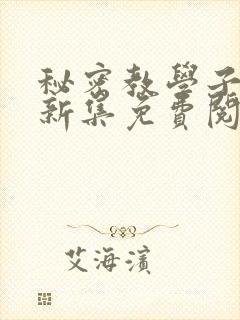 秘密教學子
新集免費閱
艾海濱